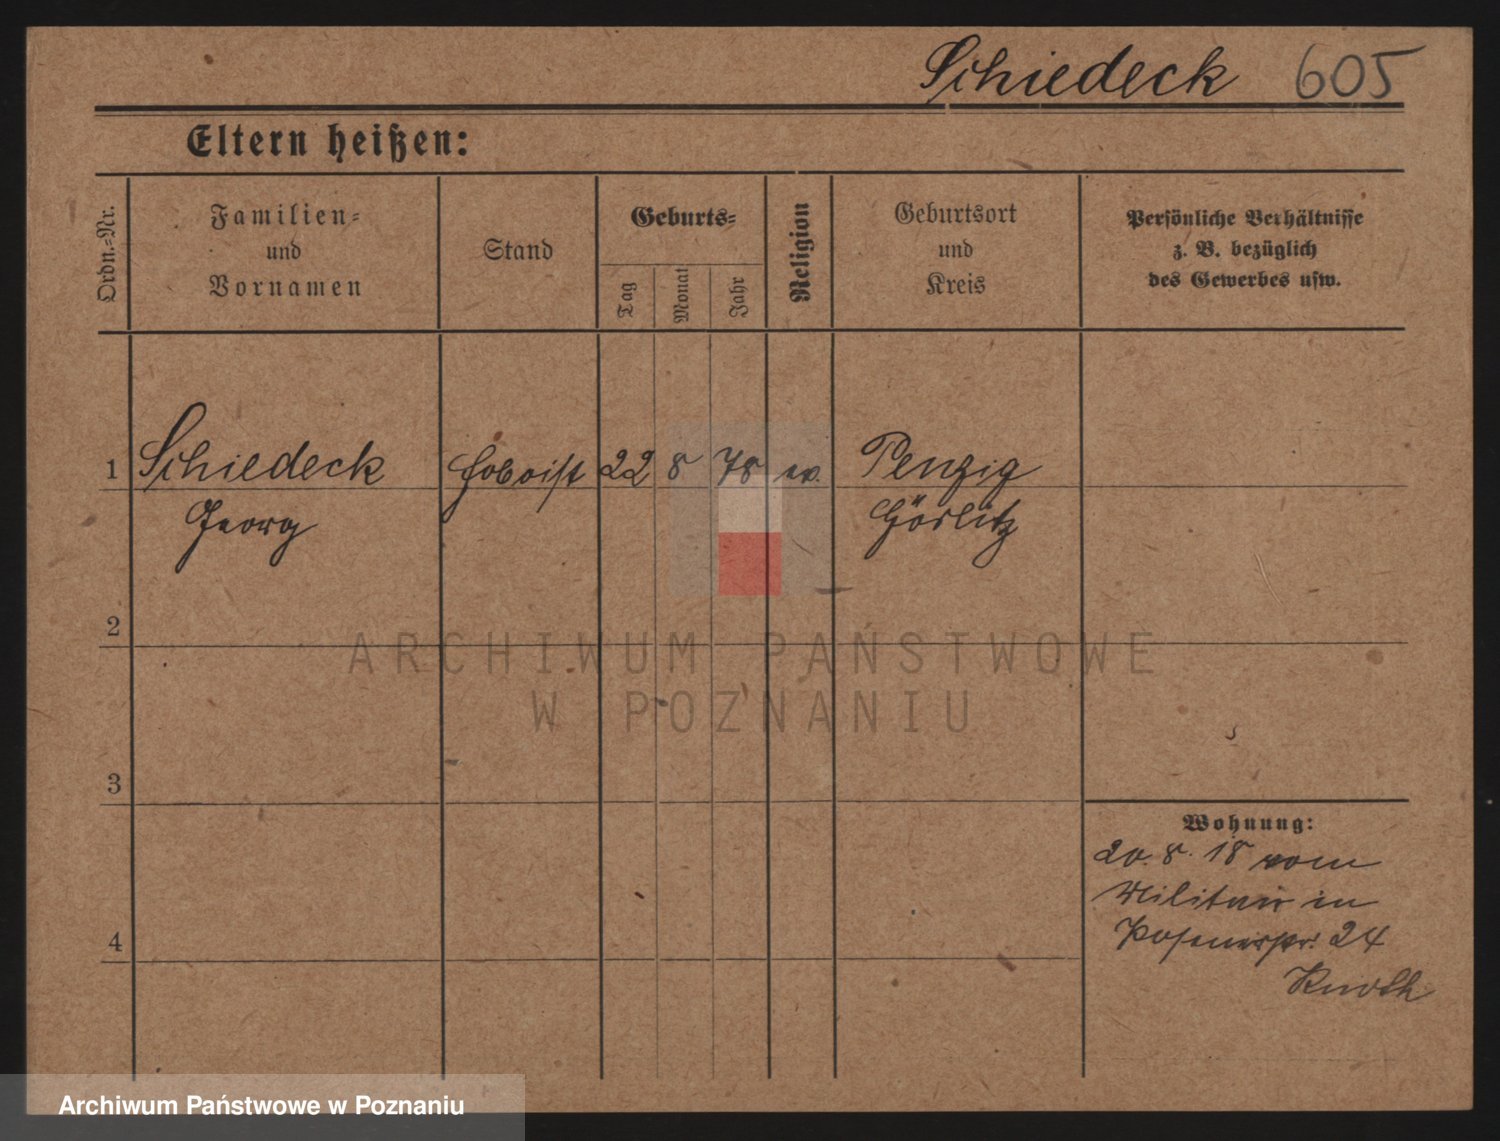 Schiedeck 605
Eltern heißen:
Ordn.-Nr.
Familien-
und
Vornamen
Stand
Geburts-
Tag
Monat
Jahr
Religion
Geburtsort
und
Kreis
Persönliche Verhältnisse
z. B. bezüglich
des Gewerbes usw.
1 Schiedeck Hoboist 22 8 78 ev. Penzig
Georg Görlitz
2
ARCHIWUM PAŃSTWOWE
W POZNANIU
3
Wohnung:
20. 8. 18 vom
Militair in
Posenerstr. 24
4
Archiwum Państwowe w Poznaniu